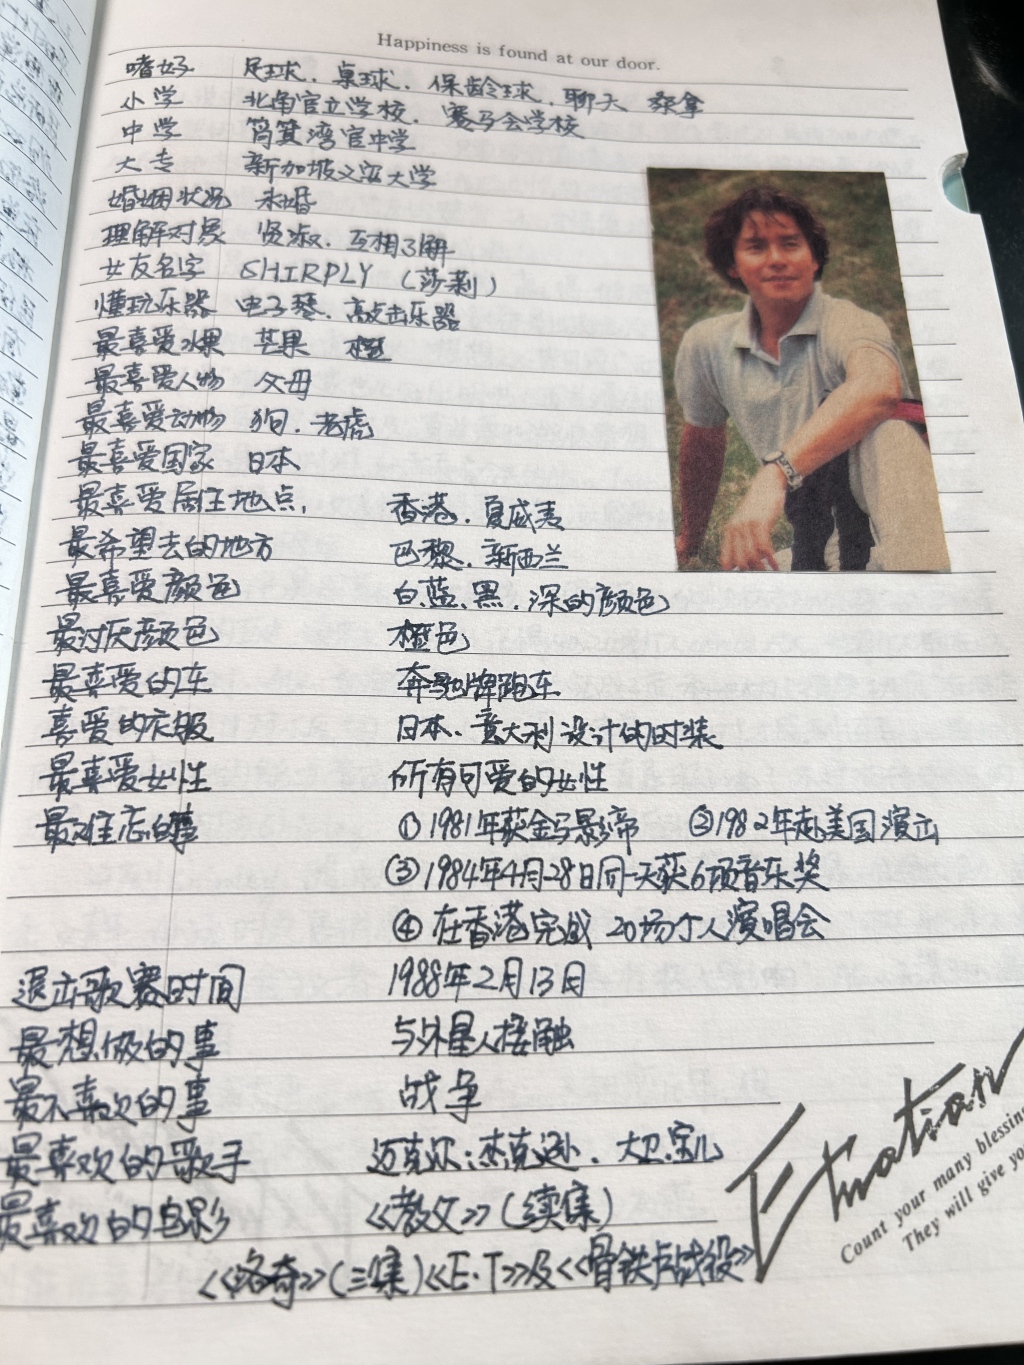 Happiness is found at our door.
嗜好 足球．桌球．保龄球．聊天 桑拿
小学 北角官立学校．赛马会学校
中学 筲箕湾官中学
大专 新加坡义安大学
婚姻状况 未婚
理解对象 贤淑．互相了解
女友名字 SHIRPLY （莎莉）
懂玩乐器 电子琴．敲击乐器
最喜爱水果 芒果 橙
最喜爱人物 父母
最喜爱动物 狗．老虎
最喜爱国家 日本
最喜爱居住地点， 香港．夏威夷
最希望去的地方 巴黎．新西兰
最喜爱颜色 白．蓝．黑．深的颜色
最讨厌颜色 橙色
最喜爱的车 奔驰牌跑车
喜爱的衣服 日本．意大利设计的时装
最喜爱女性 所有可爱的女性
最难忘的事 ①1981年获金马影帝 ②1982年赴美国演出
③1984年4月28日同一天获6项音乐奖
④在香港完成 20场个人演唱会
退出歌赛时间 1988年2月13日
最想做的事 与外星人接触
最不喜欢的事 战争
最喜欢的歌手 迈克尔：杰克逊．大卫．宝儿
最喜欢的电影 《教父》（续集）
《洛奇》（三集）《E·T》及《骨铁卢战役》
Count your many blessin
They will give yo